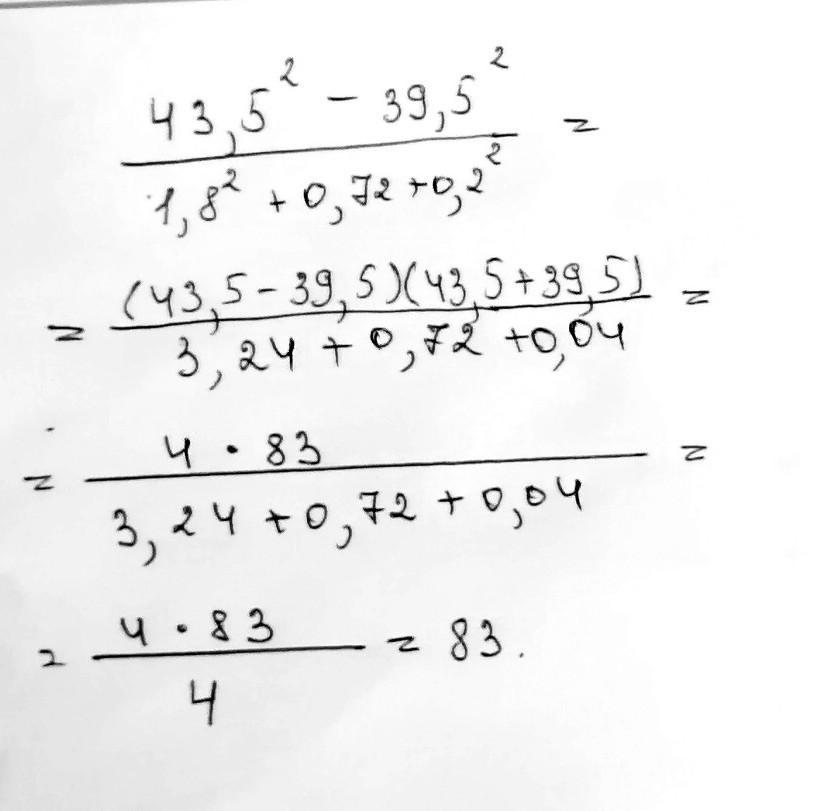 43,5² − 39,5²
1,8² + 0,72 + 0,2² =
= (43,5 − 39,5)(43,5 + 39,5)
3,24 + 0,72 + 0,04 =
= 4 · 83
3,24 + 0,72 + 0,04 =
= 4 · 83
4 = 83.